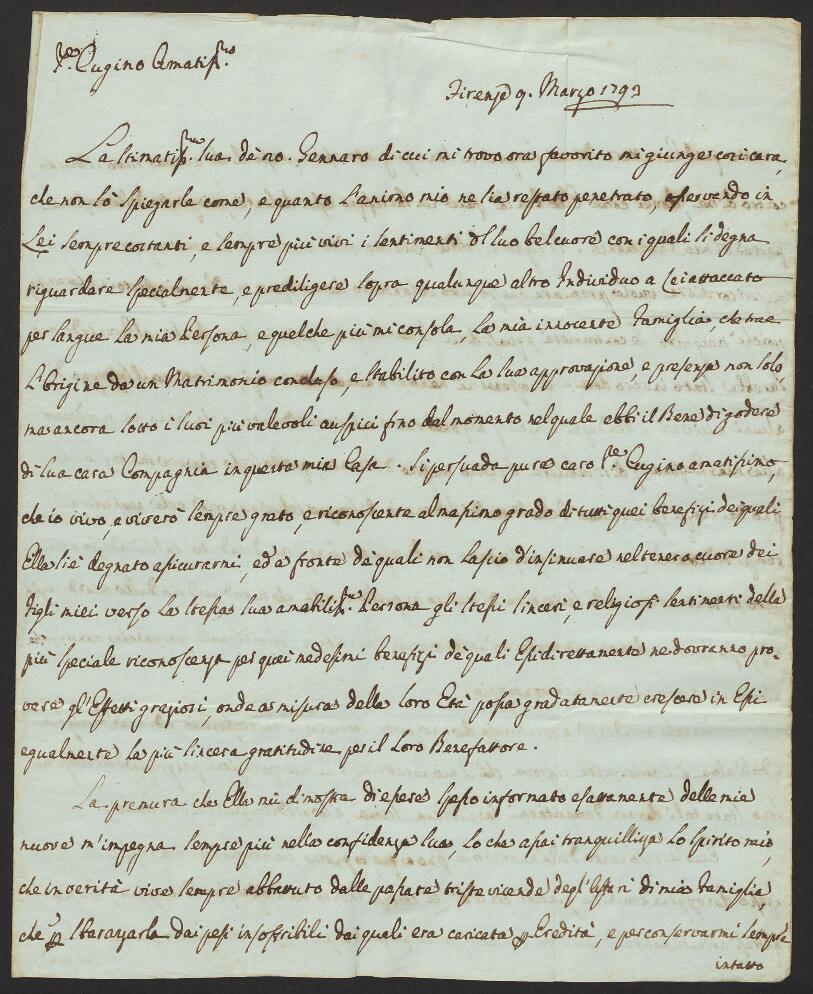 Sre. Cugino Amatissmo.
Firenze 9. Marzo 1793
La stimatissma. sua de 20. Gennaro di cui mi trovo ora favorito mi giunge così cara,
che non sò spiegarle come, e quanto l'animo mio ne sia restato penetrato, osservando in
Lei sempre costanti, e sempre più vivi i sentimenti del suo bel cuore con i quali si degna
riguardare specialmente, e prediligere sopra qualunque altro Individuo a Lei attaccato
per sangue la mia Persona, e quel che più mi consola, la mia innocente Famiglia, che trae
l'Origine da un Matrimonio concluso, e stabilito con la sua approvazione, e presenza non solo,
ma ancora sotto i suoi più valevoli auspici fino dal momento nel quale ebbi il Bene di godere
di sua cara Compagnia in questa mia Casa. Si persuada pure caro Sre. Cugino amatissimo,
che io vivo, e viverò sempre grato, e riconoscente al massimo grado di tutti quei benefizi dei quali
Ella si è degnato assicurarmi, ed a fronte de quali non lascio d'insinuare nel tenero cuore dei
Figli miei verso la stessa sua amabilissma. Persona gli stessi sinceri, e religiosi sentimenti della
più speciale riconoscenza per quei medesimi benefizi de quali Essi direttamente ne dovranno pro-
vare gl'Effetti graziosi, onde a misura della loro Età possa gradatamente crescere in Essi
egualmente la più sincera gratitudine per il Loro Benefattore.
La premura che Ella mi dimostra di essere spesso informato esattamente delle mie
nuove m'impegna sempre più nella confidenza sua, lo che assai tranquillizza lo spirito mio,
che in verità vive sempre abbattuto dalle passate triste vicende degl'Affari di mia Famiglia,
che p sbarazzarla dai pesi insoffribili dai quali era caricata p Eredità, e per conservarmi sempre
intatto